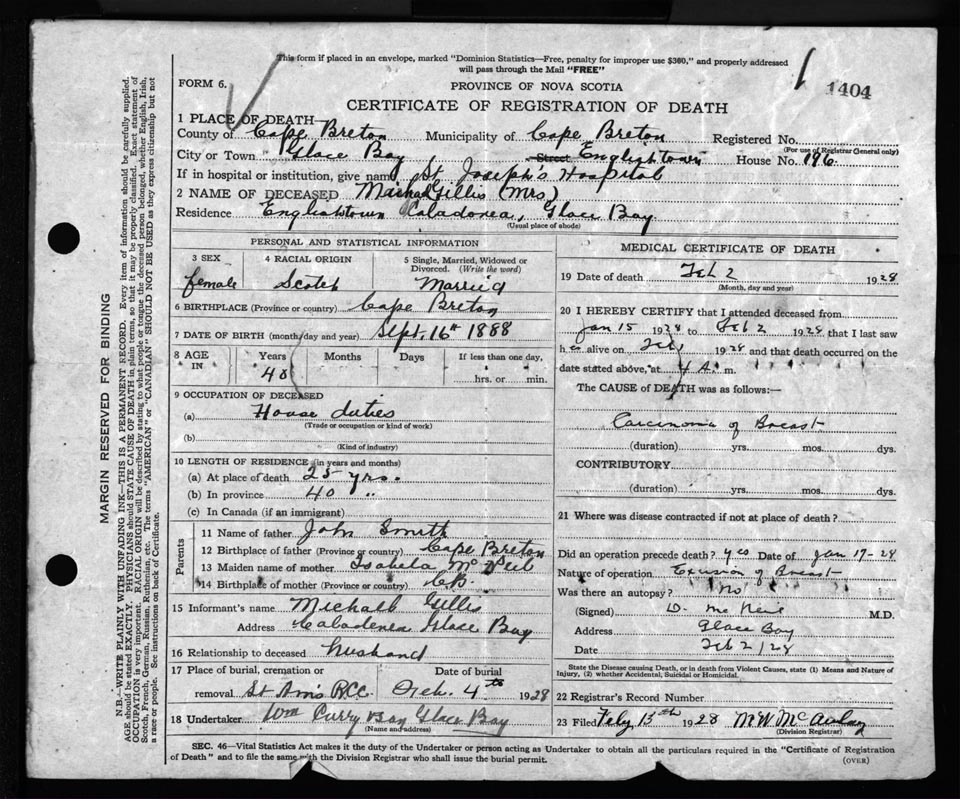 This form if placed in an envelope, marked "Dominion Statistics—Free, penalty for improper use $300," and properly addressed
will pass through the Mail "FREE"
1404
FORM 6.
PROVINCE OF NOVA SCOTIA
CERTIFICATE OF REGISTRATION OF DEATH
1 PLACE OF DEATH—
County of Cape Breton Municipality of Cape Breton Registered No.
(For use of Registrar General only)
City or Town Glace Bay Street Englishtown House No. 196
If in hospital or institution, give name St Joseph's Hospital
2 NAME OF DECEASED Gillis (Mrs)
Residence Englishtown Caladonea, Glace Bay
(Usual place of abode)
PERSONAL AND STATISTICAL INFORMATION
3 SEX 4 RACIAL ORIGIN 5 Single, Married, Widowed or Divorced. (Write the word)
female Scotch Married
6 BIRTHPLACE (Province or country) Cape Breton
7 DATE OF BIRTH (month/day and year) Sept. 16th 1888
8 AGE IN Years Months Days If less than one day,
40 hrs. or min.
9 OCCUPATION OF DECEASED
(a) House duties
(Trade or occupation or kind of work)
(b)
(Kind of industry)
10 LENGTH OF RESIDENCE (in years and months)
(a) At place of death 25 yrs.
(b) In province 40 "
(c) In Canada (if an immigrant)
Parents
11 Name of father John Smith
12 Birthplace of father (Province or country) Cape Breton
13 Maiden name of mother Isabela
14 Birthplace of mother (Province or country) C.B.
15 Informant's name Michael Gillis
Address Caladenea Glace Bay
16 Relationship to deceased husband
17 Place of burial, cremation or Date of burial
removal St Ann's R.C.C. Feb. 4th 1928
18 Undertaker Wm Curry Glace Bay
(Name and address)
MEDICAL CERTIFICATE OF DEATH
19 Date of death Feb 2 1928
(Month, day and year)
20 I HEREBY CERTIFY that I attended deceased from
Jan 15 1928 to Feb 2 1928 that I last saw
h es alive on Feb 1 1928 and that death occurred on the
date stated above, at 4 A. m.
The CAUSE OF DEATH was as follows:—
Carcinoma of Breast
(duration) yrs. mos. dys.
CONTRIBUTORY
(duration) yrs. mos. dys.
21 Where was disease contracted if not at place of death?
Did an operation precede death? yes Date of Jan 17-28
Nature of operation Excision of Breast
Was there an autopsy? No
(Signed) D. McNeil M.D.
Address Glace Bay
Date Feb 2/28
State the Disease causing Death, or in death from Violent Causes, state (1) Means and Nature of
Injury, (2) whether Accidental, Suicidal or Homicidal.
22 Registrar's Record Number
23 Filed Feby 13th 1928 M W McAulay
(Division Registrar)
SEC. 46—Vital Statistics Act makes it the duty of the Undertaker or person acting as Undertaker to obtain all the particulars required in the "Certificate of Registration
of Death" and to file the same with the Division Registrar who shall issue the burial permit.
(OVER)
MARGIN RESERVED FOR BINDING
N.B.—WRITE PLAINLY WITH UNFADING INK—THIS IS A PERMANENT RECORD. Every item of information should be carefully supplied.
AGE should be stated EXACTLY. PHYSICIANS should STATE CAUSE OF DEATH in plain terms, so that it may be properly classified. Exact statement of
OCCUPATION is very important. RACIAL ORIGIN will be described by stating to what people or tongue the deceased person belonged, whether English, Irish,
Scotch, French, German, Russian, Ruthenian, etc. The terms "AMERICAN" or "CANADIAN" SHOULD NOT BE USED as they express citizenship but not
a race or people. See instructions on back of Certificate.